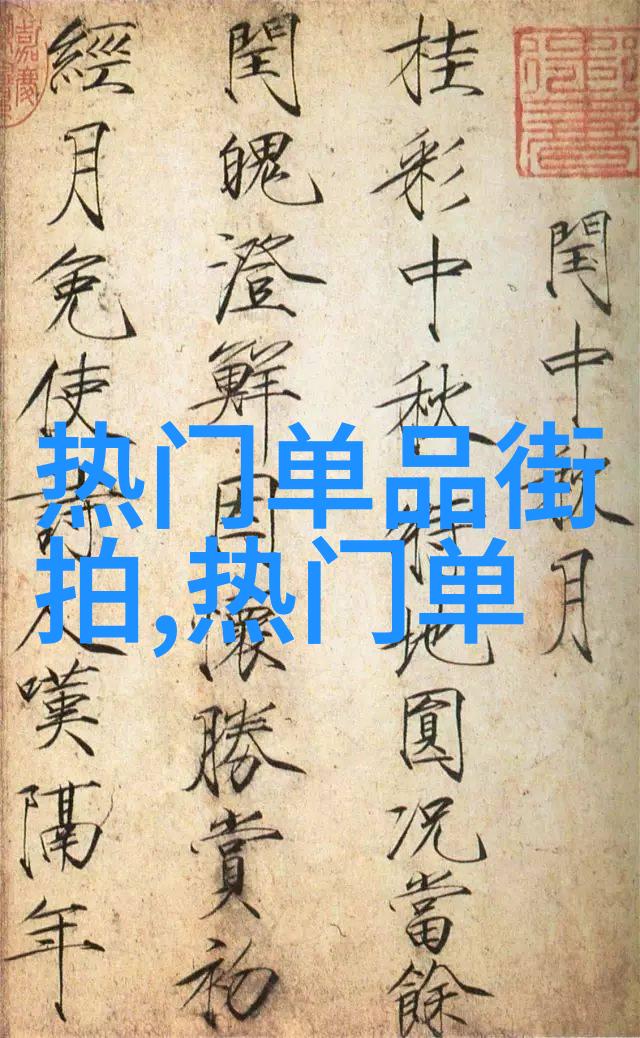 閏中秋月
桂彩中秋特地圓况當餘
閏魄澄鮮因懷勝賞初
經月免使詩人嘆隔年
热门单品街
拍,热门单